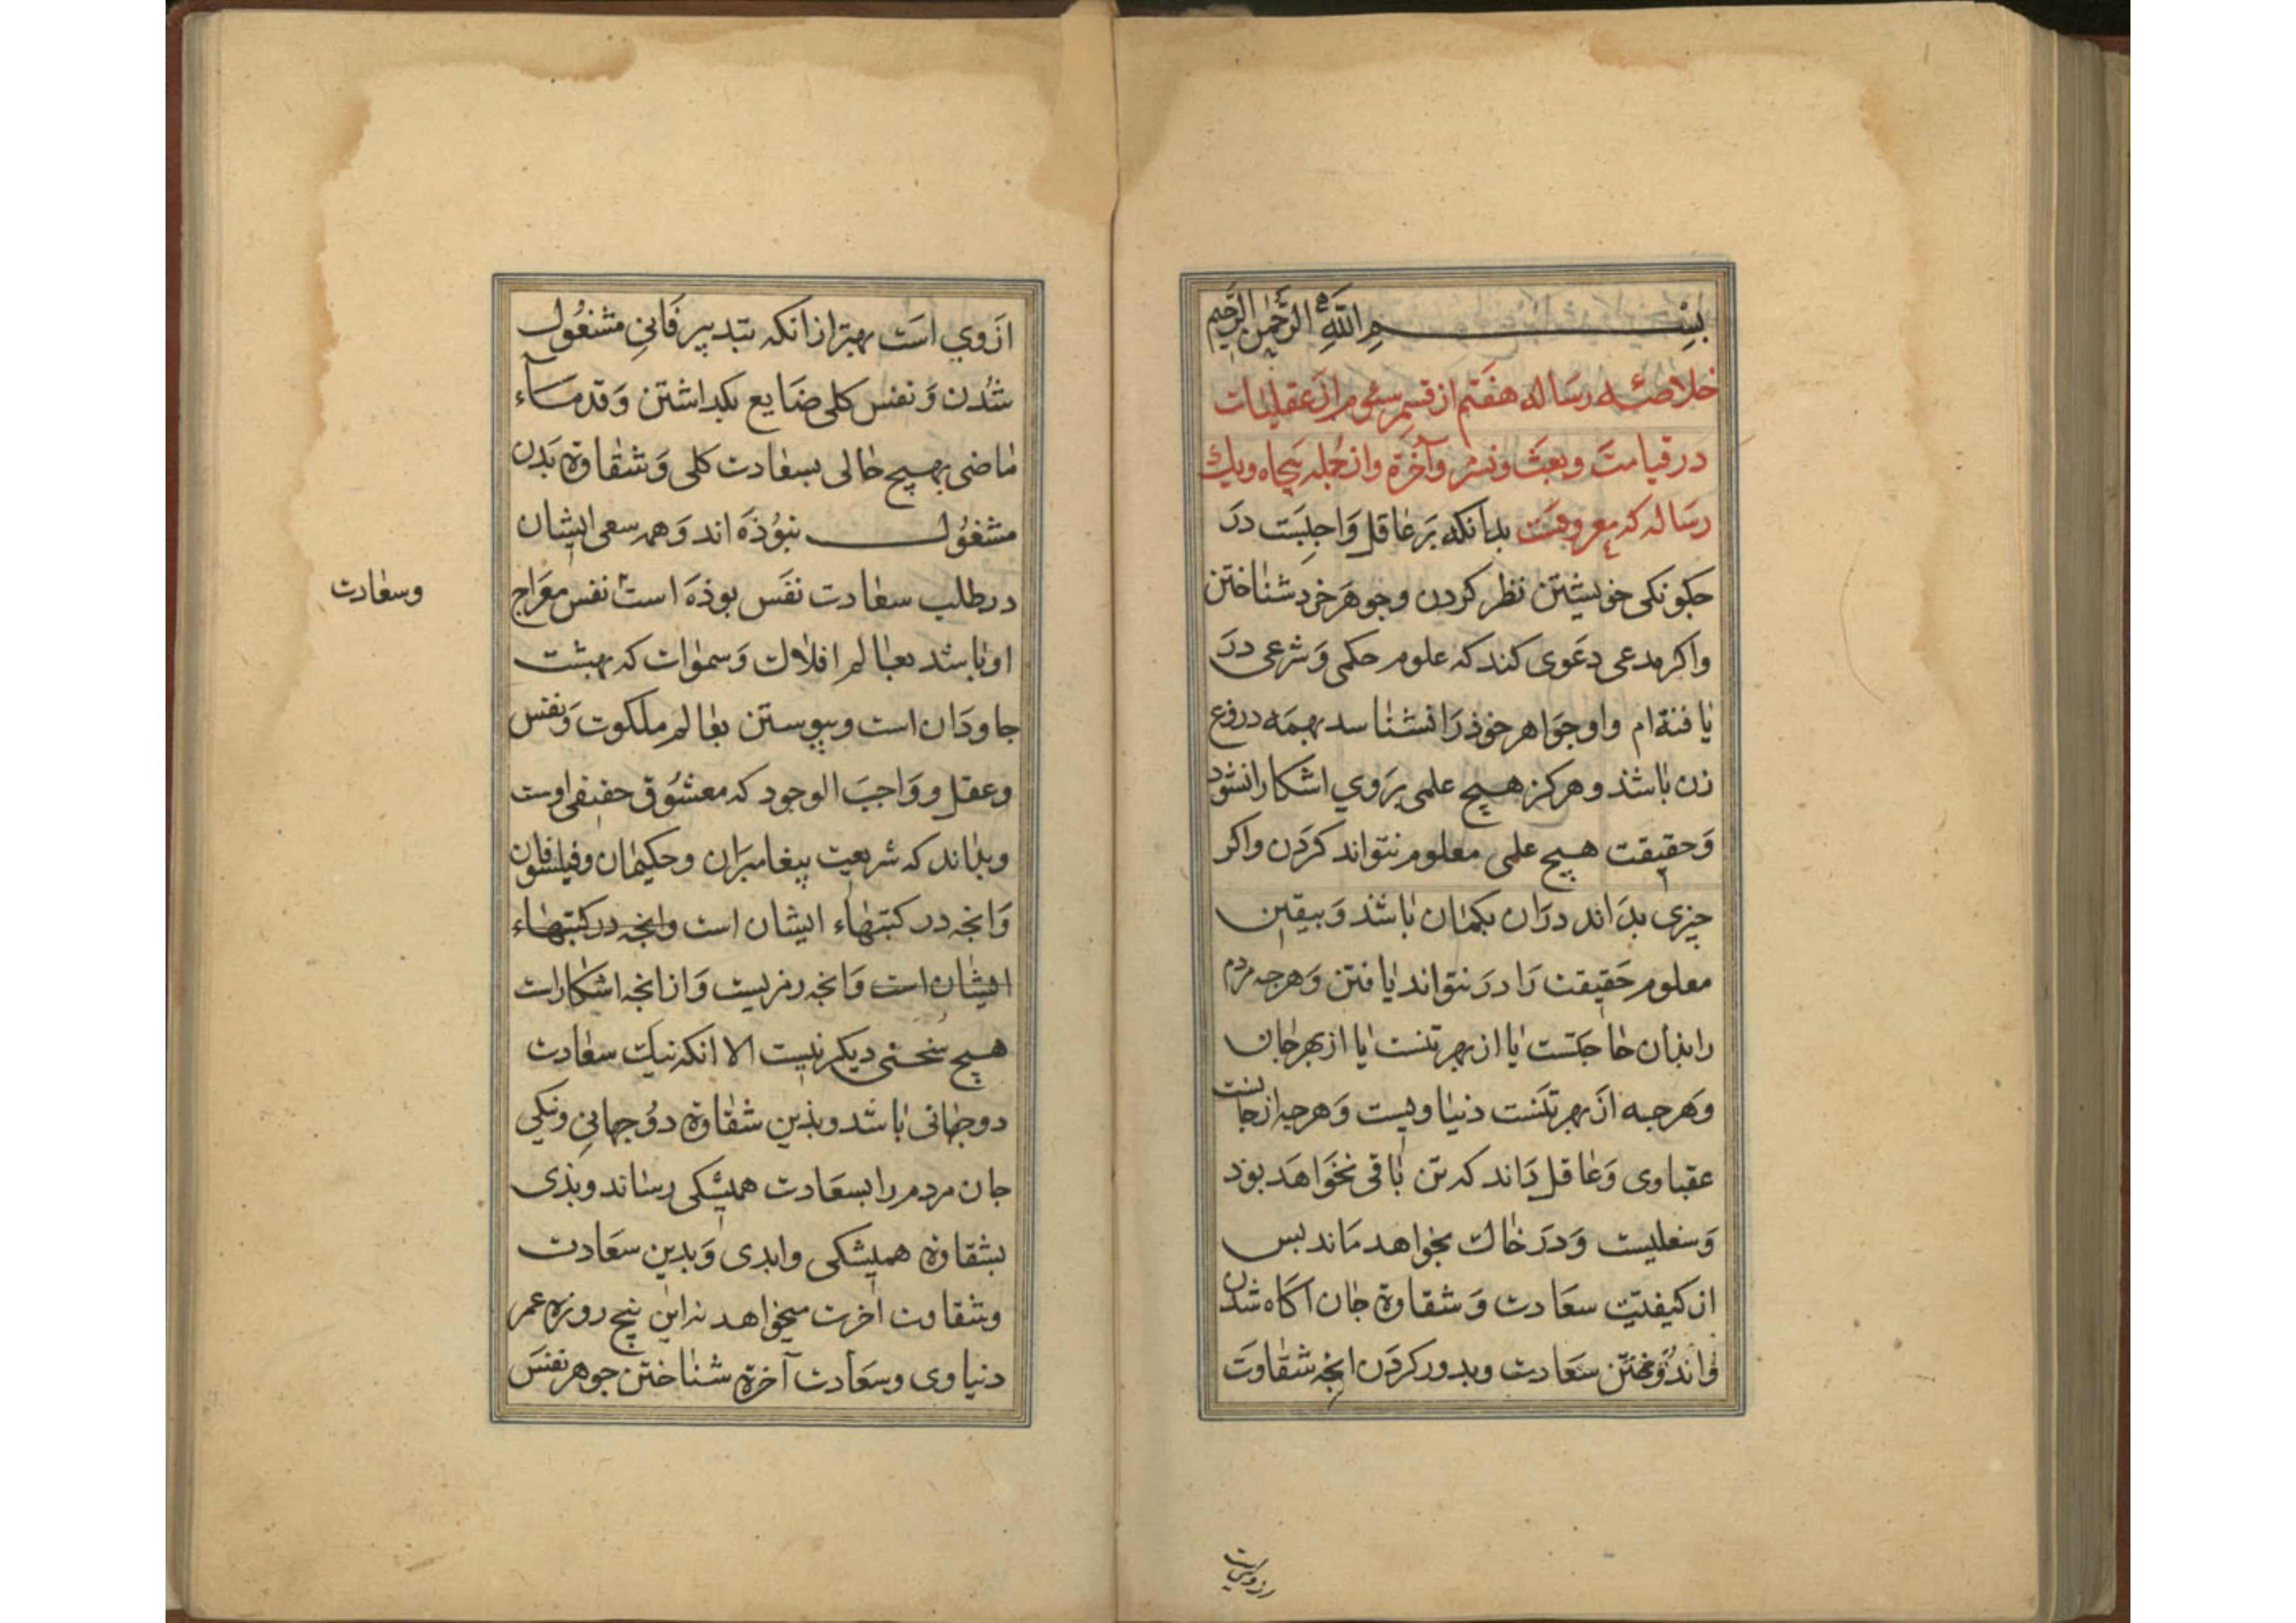 بسم الله الرحمن الرحیم
خلاصه رساله هفتم از قسم سئم از عقلیات
در قیامت و بعث و نشر و آخرة وان جمله پنجاه ویك
رساله که معروفست بدانکه بر عاقل واجبست در
چکونکی خویشتن نظر کردن و جوهر خرد شناختن
واکر مدعی دعوی کند که علوم حکمی و شرعی در
یافتة ام واو جواهر خوذ را نشناسد بهمه دروغ
زن باشذ و هرکز هیچ علمی بروي اشکارا نشود
وحقیقت هیچ علمی معلوم نتواند کردن واکر
چیزی بداند دران بکمان باشذ و بیقین
معلوم حقیقت را در نتواند یافتن وهرچه مردم
را بذان حاجتست یا از بهر تنست یا از بهر جان
وهرجه از بهر تنست دنیاویست وهرچه از جانست
عقباوی وعاقل داند که تن باقی نخواهد بوذ
وسفلیست ودر خاك بخواهد ماند بس
از کیفیت سعادت و شقاوة جان آکاه شدن
واندوختن سعادت وبدور کردن انچه شقاوت
از وي است
از وي است بهتر از انکه بتدبیر فانی مشغول
شدن و نفس کلی ضایع بکداشتن وقدماء
ماضی بهیچ حالی بسعادت کلی و شقاوة بدن
مشغول نبوذه اند وهمه سعی ایشان
در طلب سعادت نفس بوذه است نفس معراج
وسعادت
او باشد بعالم افلاك وسموات که بهشت
جاودان است وپیوستن بعالم ملکوت ونفس
وعقل و واجب الوجود که معشوق حقیقی اوست
وبداند که شریعت پیغامبران وحکیمان وفیلسوفان
وانچه در کتبهاء ایشان است وانچه در کتبهاء
ایشان است وانچه رمزیست وازانچه اشکاراست
هیچ سخنی دیکر نیست الا انکه نیك سعادت
دوجهانی باشد وبذین شقاوة دوجهانی ونیکی
جان مردم را بسعادت همیشکی رساند وبذی
بشقاوة همیشکی وابدی وبدین سعادت
وشقاوت اخرت میخواهد نه این پنج روزه عمر
دنیاوی وسعادت آخرة شناختن جوهر نفس